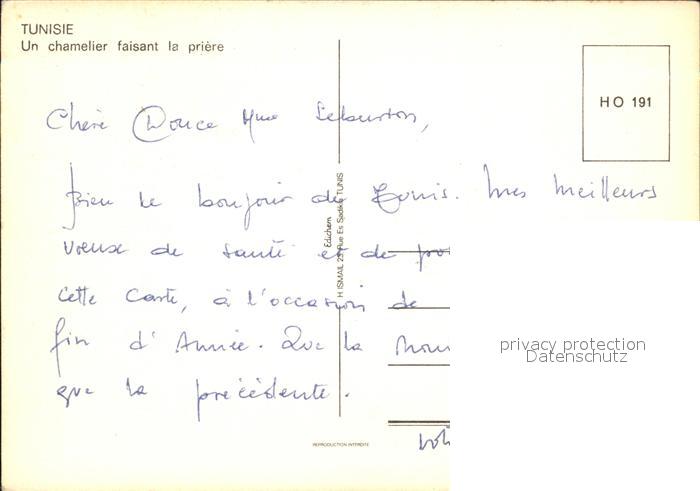 TUNISIE
Un chamelier faisant la prière
HO 191
Chère Douce Mme
bien le bonjour de Tunis. Mes meilleurs
voeux de santé et de
cette carte, à l'occasion de
fin d'Année. Que la
que la précédente.
Edichem
H ISMAIL 23, Rue Es Sadikia TUNIS
REPRODUCTION INTERDITE
privacy protection
Datenschutz